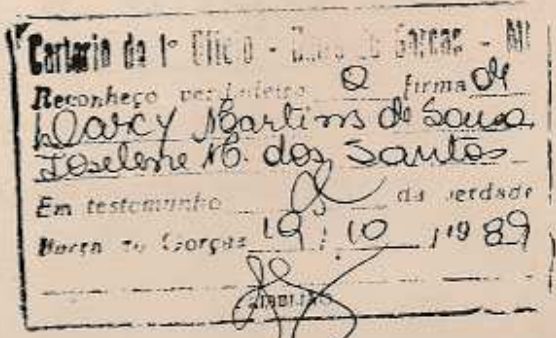 Cartorio do 1º Oficio - Barra do Garças - MT
Reconheço verdadeira a firma de
Darcy Martins de Sousa
Joselene M. dos Santos
Em testemunho da verdade
Barra do Garças 19 / 10 / 19 89